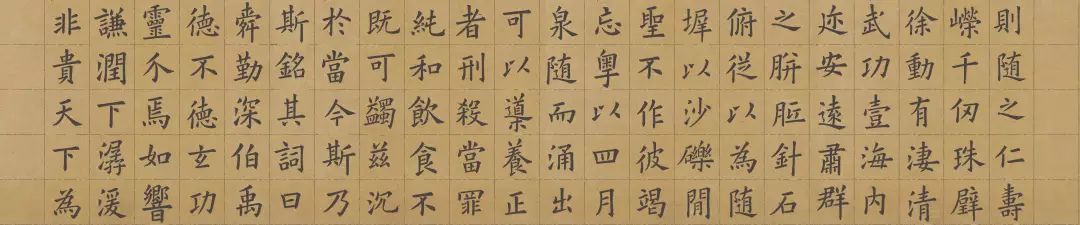 則随之仁壽
嶸千仞珠壁
徐動有淒清
武功壹海内
迩安遠肅群
之胼胝針石
俯従以為随
墀以沙礫閒
聖不作彼竭
忘粤以四月
泉随而涌出
可以導養正
者刑殺當罪
純和飲食不
既可蠲兹沉
於當今斯乃
斯銘其詞曰
舜勤深伯禹
德不德玄功
靈介焉如響
謙潤下潺湲
非貴天下為